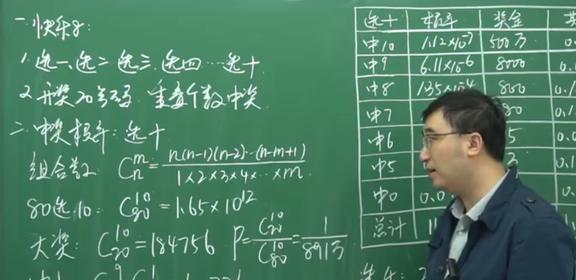 一.快乐8:
1.选一、选二 选三 选四…选十
2.开奖20个号码 重叠个数中奖
二.中奖概率: 选十
组合数: C_n^m = n(n-1)(n-2)…(n-m+1) / 1×2×3×4×…×m
80选10: C_80^10 = 1.65×10^12
大奖: C_20^10 = 184756 P = C_20^10 / C_80^10 = 1 / 891万
选十 概率 奖金
中10 1.12×10^-7 500万 0.
中9 6.11×10^-6 8000 0.
中8 1.35×10^-4 800 0.1
中7 80 0.1
中6 5 0.
中5 3 0.1
中0 0.0
总计